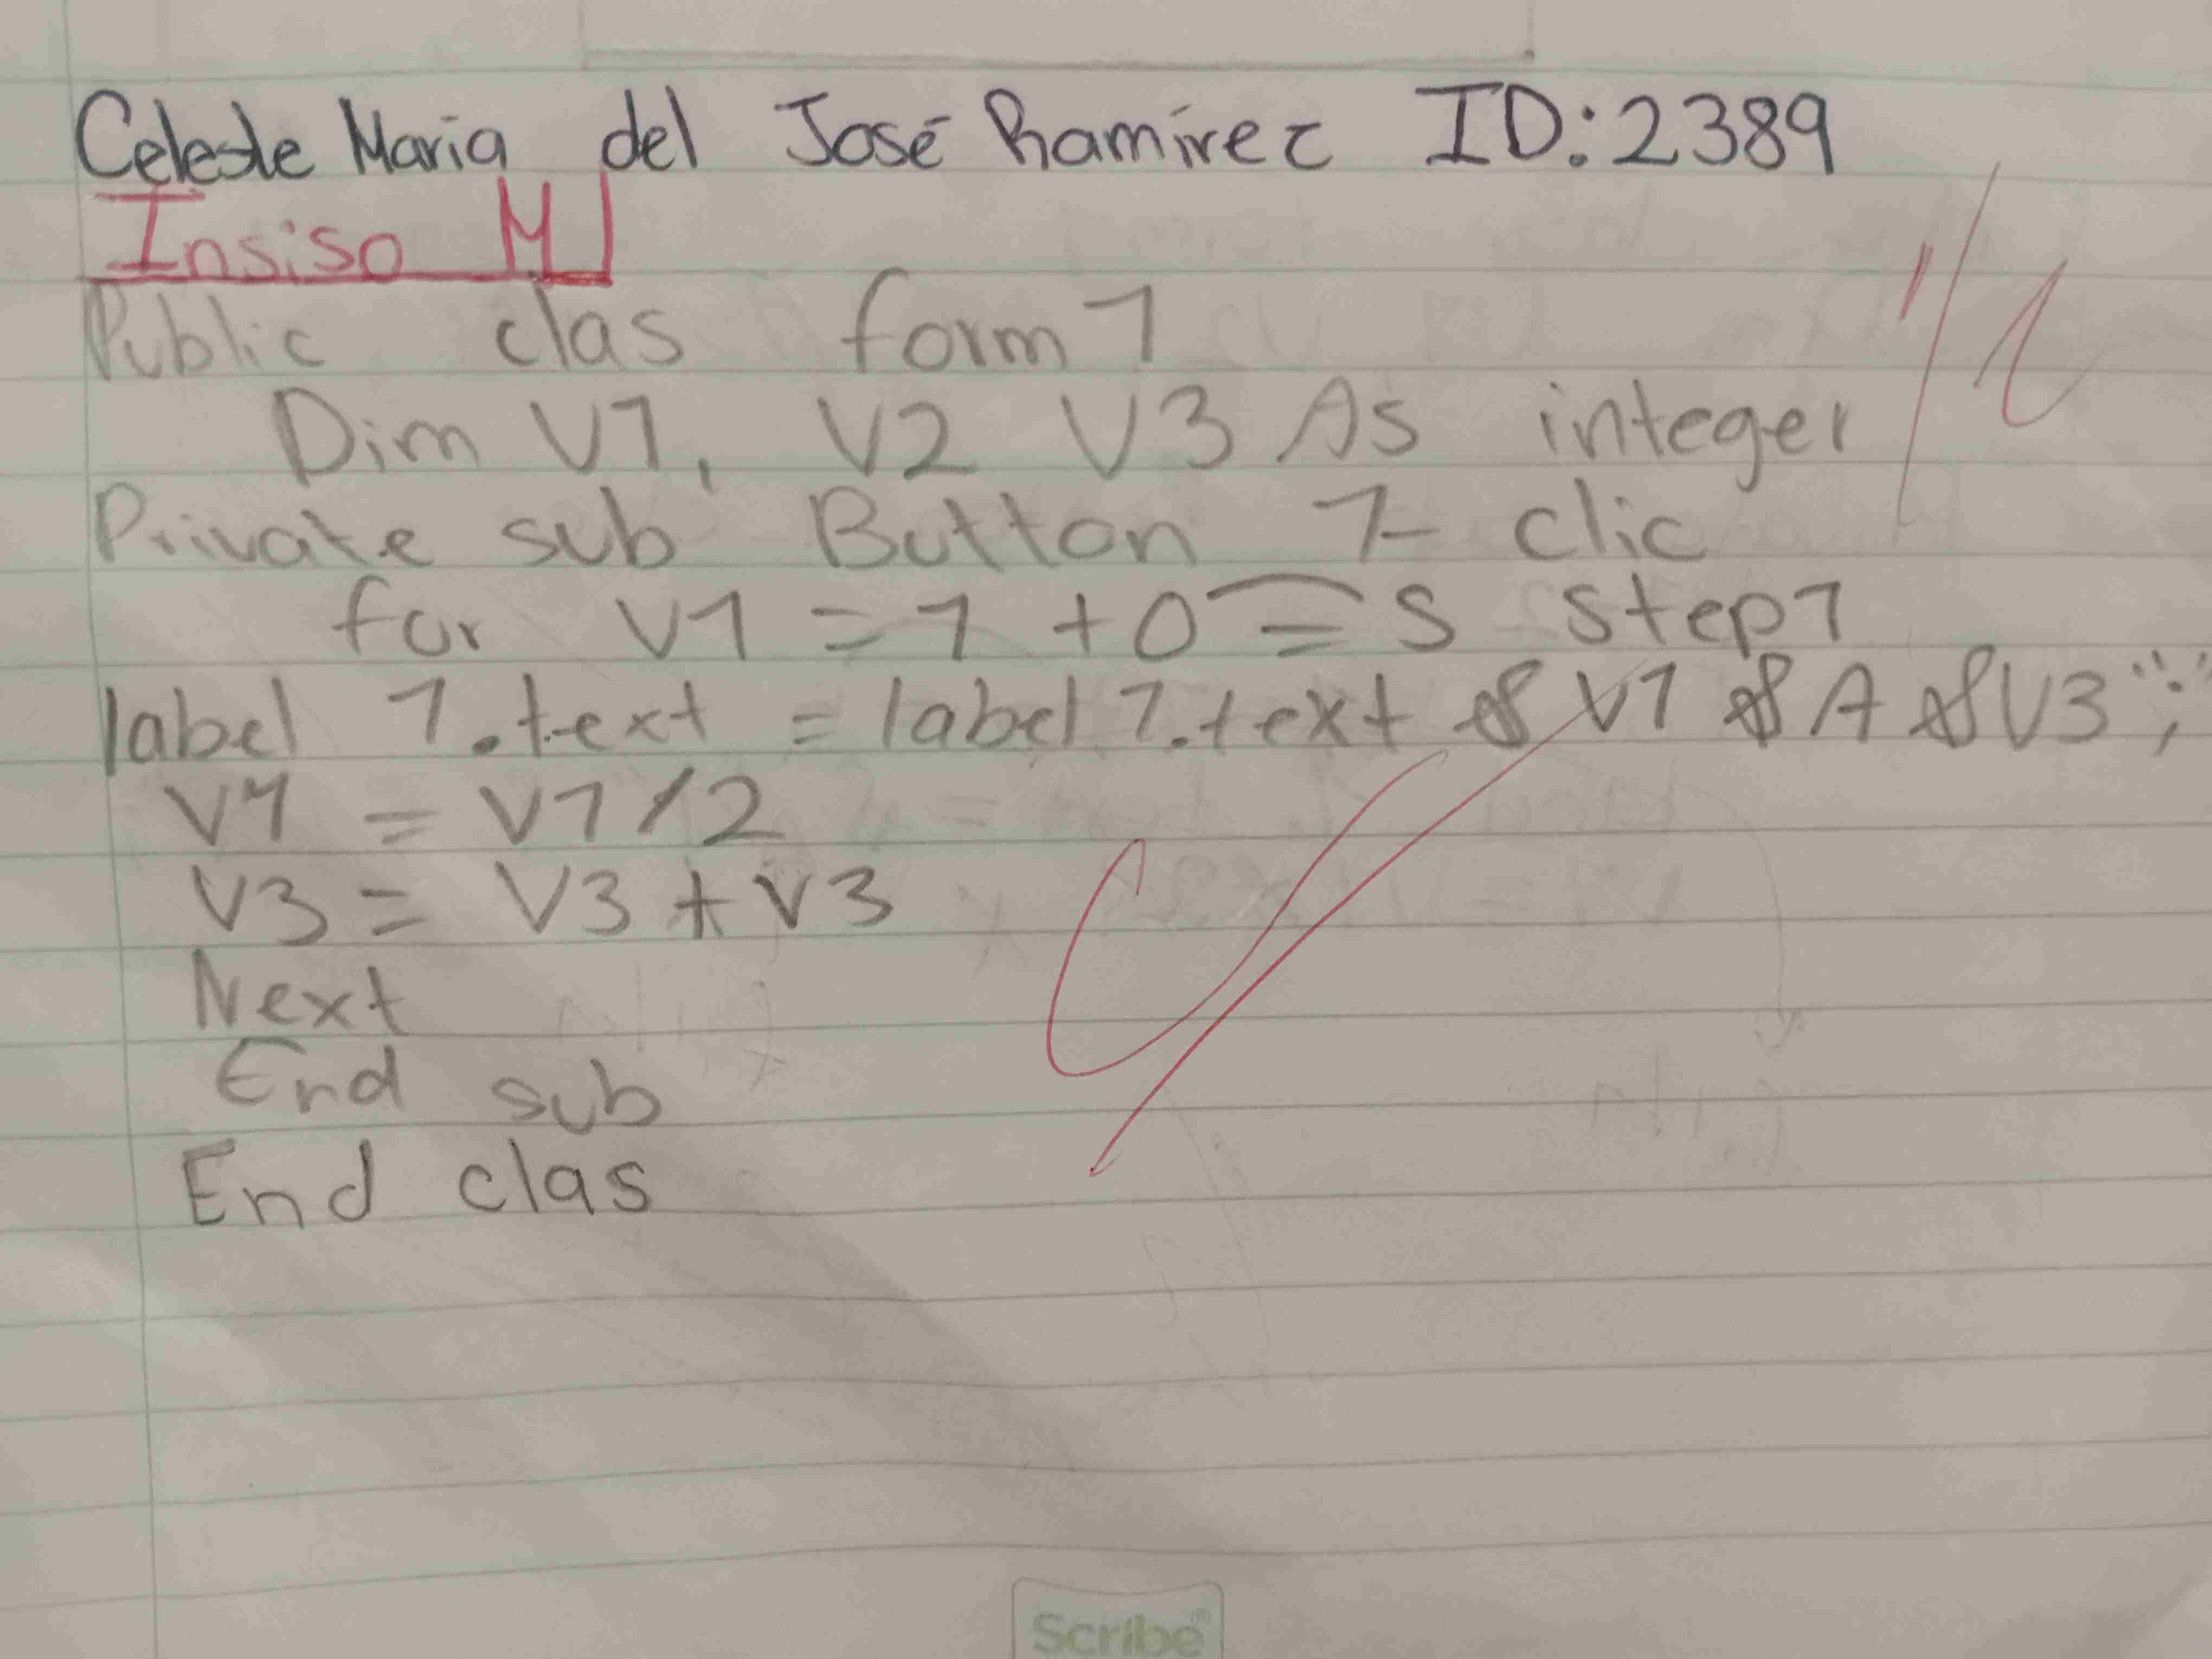 Celeste Maria del José Ramírez ID:2389
Insiso M
Public clas form1
Dim V1, V2 V3 As integer
Private sub Button 1- clic
for V1 = 1 +0 = 5 step1
label 1.text = label 1.text & V1 & A & V3 ";"
V1 = V1/2
V3 = V3 + V3
Next
End sub
End clas
Scribe